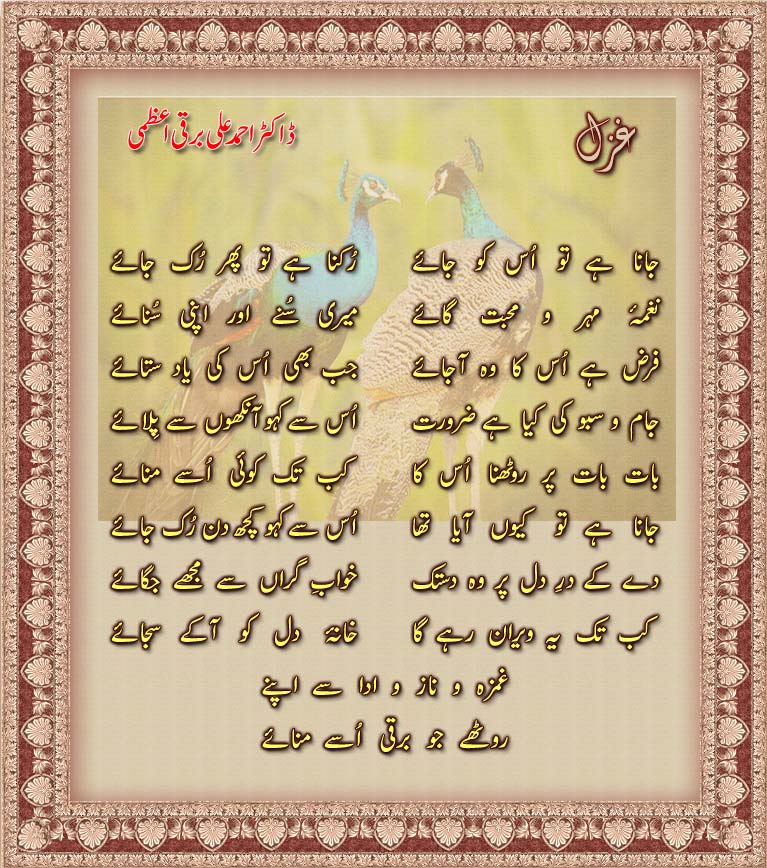 غزل
ڈاکٹر احمد علی برقی اعظمی
جانا ہے تو اُس کو جائے رُکنا ہے تو پھر رُک جائے
نغمۂ مہر و محبت گائے میری سُنے اور اپنی سُنائے
فرض ہے اُس کا وہ آجائے جب بھی اُس کی یاد ستائے
جام و سبو کی کیا ہے ضرورت اُس سے کہو آنکھوں سے پِلائے
بات بات پر روٹھنا اُس کا کب تک کوئی اُسے منائے
جانا ہے تو کیوں آیا تھا اُس سے کہو کچھ دن رُک جائے
دے کے درِ دل پر وہ دستک خوابِ گراں سے مجھے جگائے
کب تک یہ ویران رہے گا خانۂ دل کو آکے سجائے
غمزہ و ناز و ادا سے اپنے
روٹھے جو برقی اُسے منائے